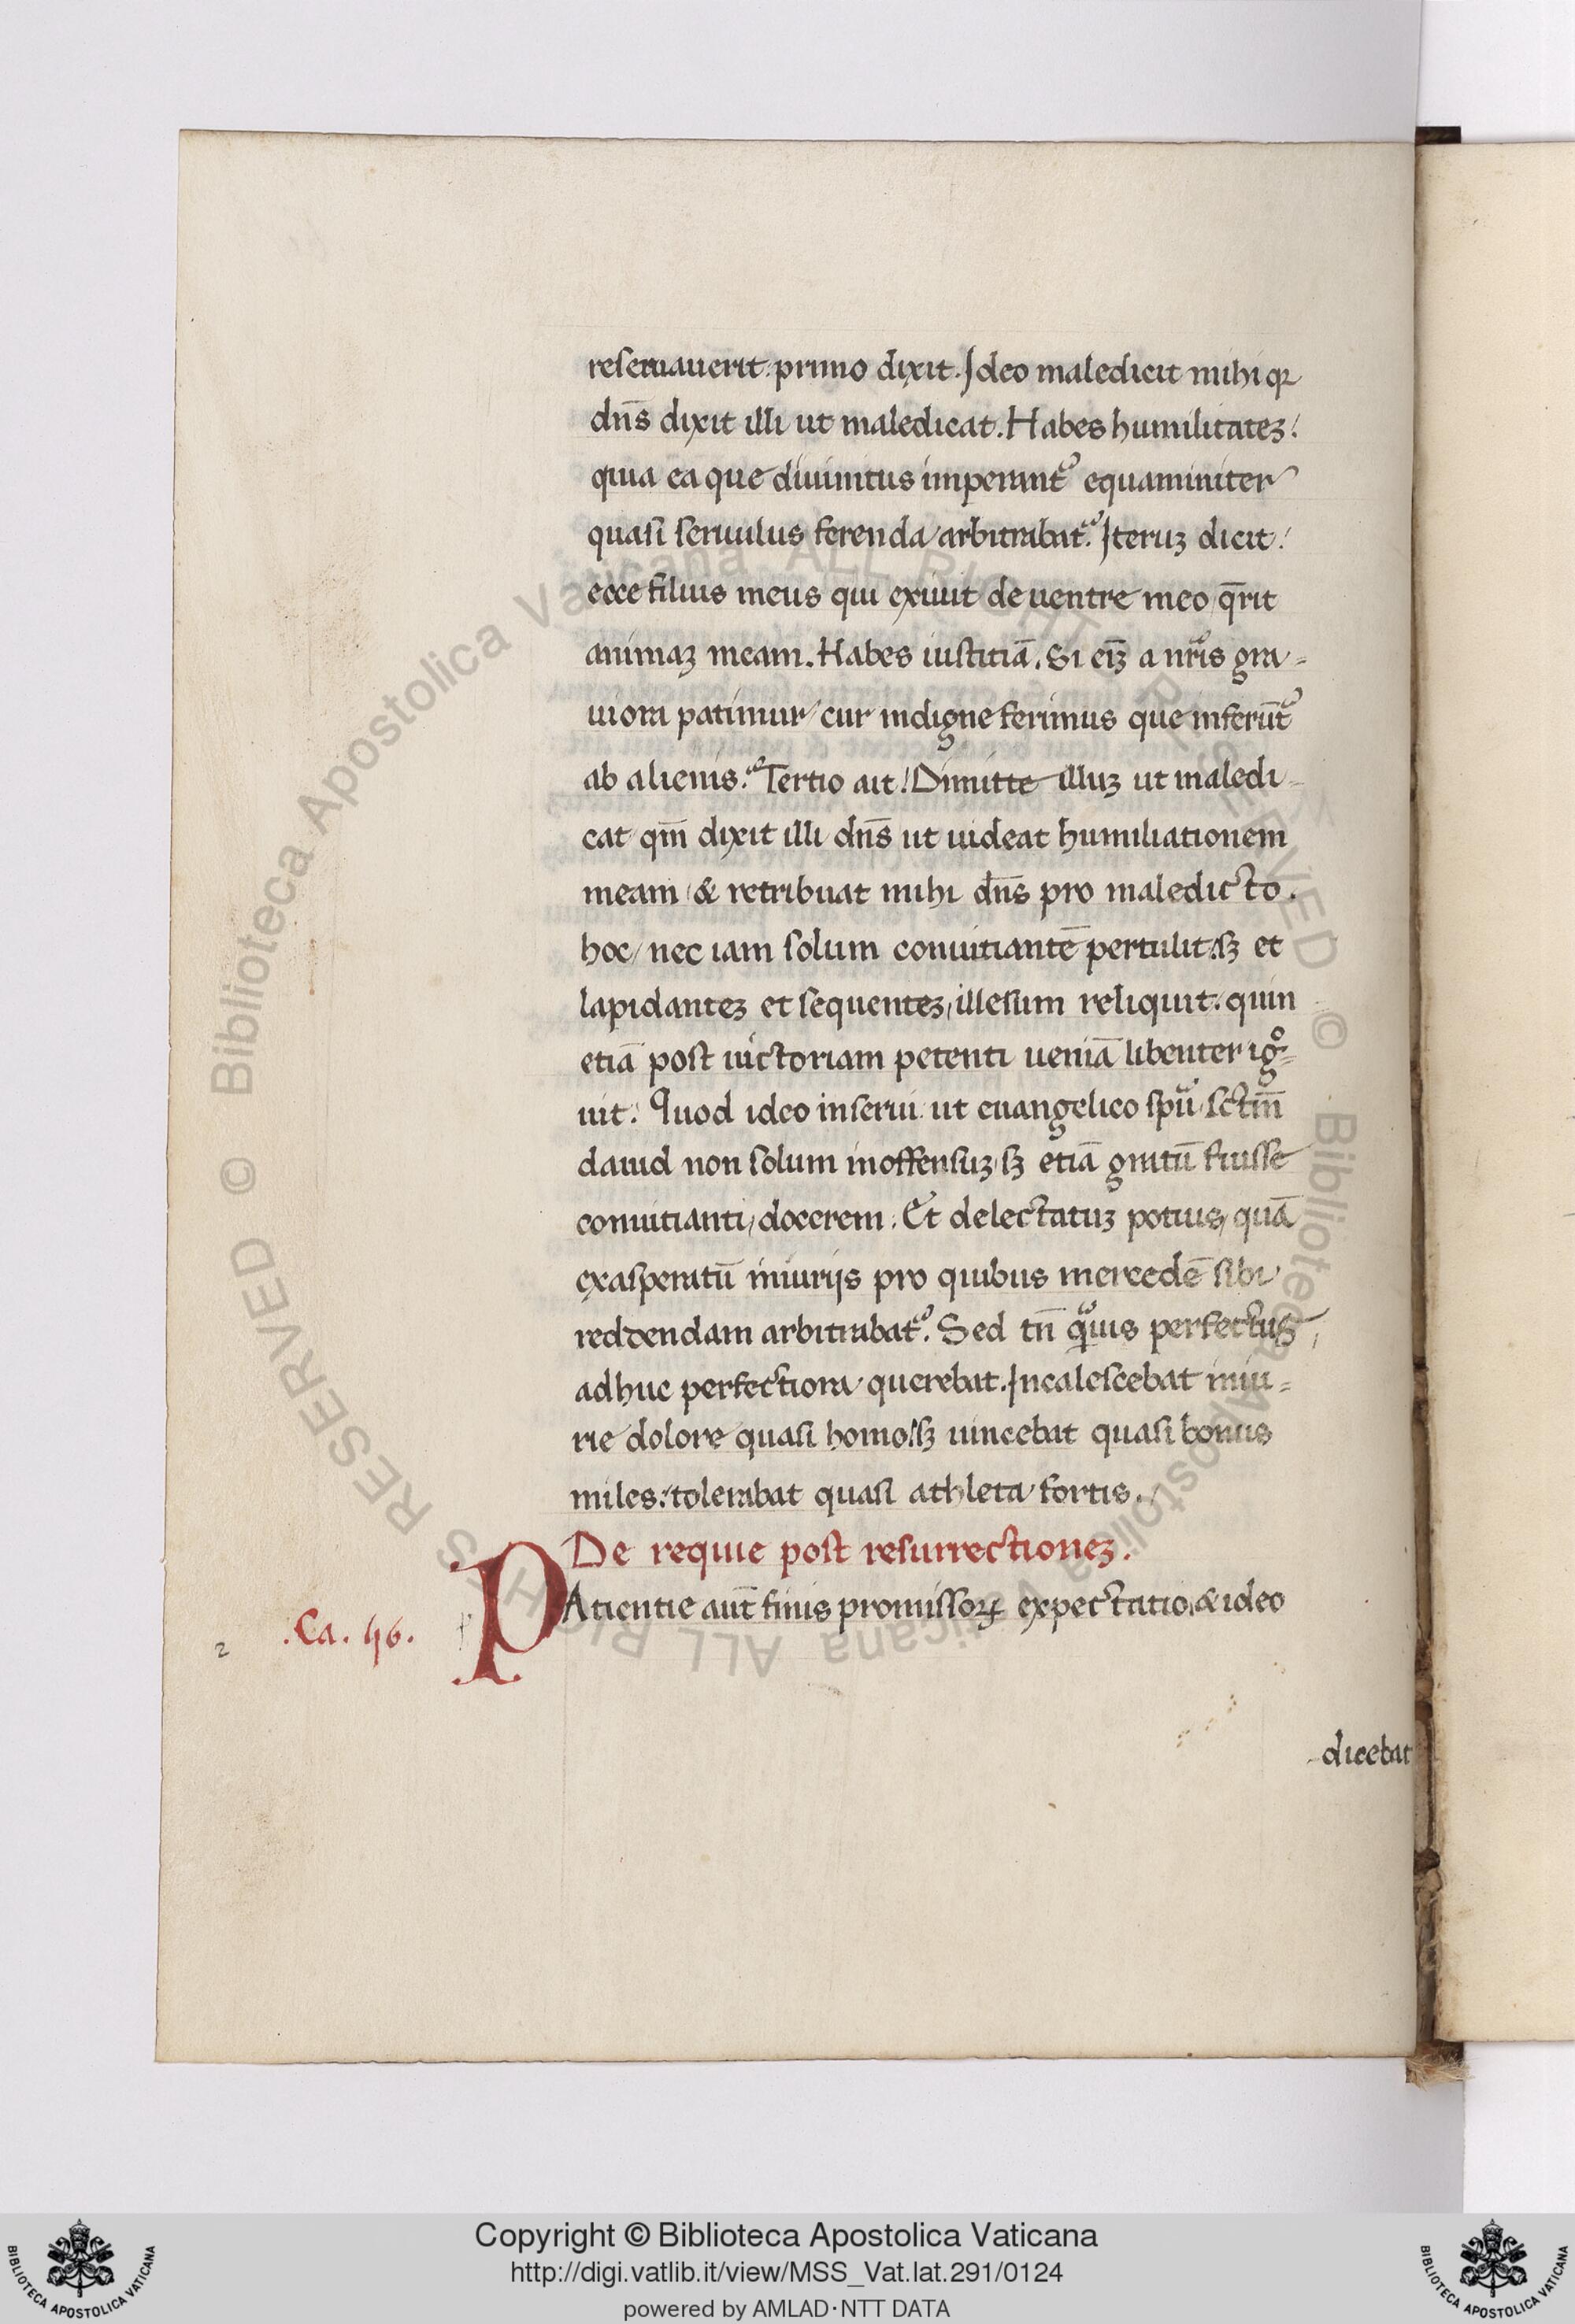 reseruauerit. primo dixit. Ideo maledicit mihi qꝛ
dn̄s dixit illi ut maledicat. Habes humilitateꝫ:
quia ea que diuinitus imperant᷑ equaminiter
quasi seruulus ferenda arbitrabat᷑. Iteruꝫ dicit:
ecce filius meus qui exiuit de uentre meo q̄rit
animaꝫ meam. Habes iustitiā. Si eīꝫ a nr̄is gra-
uiora patimur cur indigne ferimus que inferūt᷑
ab alienis. Tertio ait: Dimitte illuꝫ ut maledi-
cat qm̄ dixit illi dn̄s ut uideat humiliationem
meam / & retribuat mihi dn̄s pro maledicto.
hoc / nec iam solum conuitiantē pertulit: sꝫ et
lapidanteꝫ et sequenteꝫ / illesum reliquit. quin
etiā post uictoriam petenti ueniā libenter ig̊-
uit. Quod ideo inserui ut euangelico spū sctm̄
dauid non solum inoffensuꝫ / sꝫ etiā gratū fuisse
conuitianti / docerem. Et delectatuꝫ potius / quā
exasperatū iniurijs pro quibus mercedē sibi
reddendam arbitrabat᷑. Sed tn̄ qͣuis perfectus /
adhuc perfectiora querebat. Incalescebat iniu-
rie dolore quasi homo: sꝫ uincebat quasi bonus
miles: tolerabat quasi athleta fortis.
De requie post resurrectioneꝫ.
PAtientie aut̄ finis promissoꝝ expectatio, & ideo
.Ca. 46.
2
dicebat
© Biblioteca Apostolica Vaticana ALL RIGHTS RESERVED © Biblioteca Apostolica Vaticana ALL RIGHTS RESERVED
Copyright © Biblioteca Apostolica Vaticana
http://digi.vatlib.it/view/MSS_Vat.lat.291/0124
powered by AMLAD·NTT DATA
BIBLIOTECA APOSTOLICA VATICANA
BIBLIOTECA APOSTOLICA VATICANA